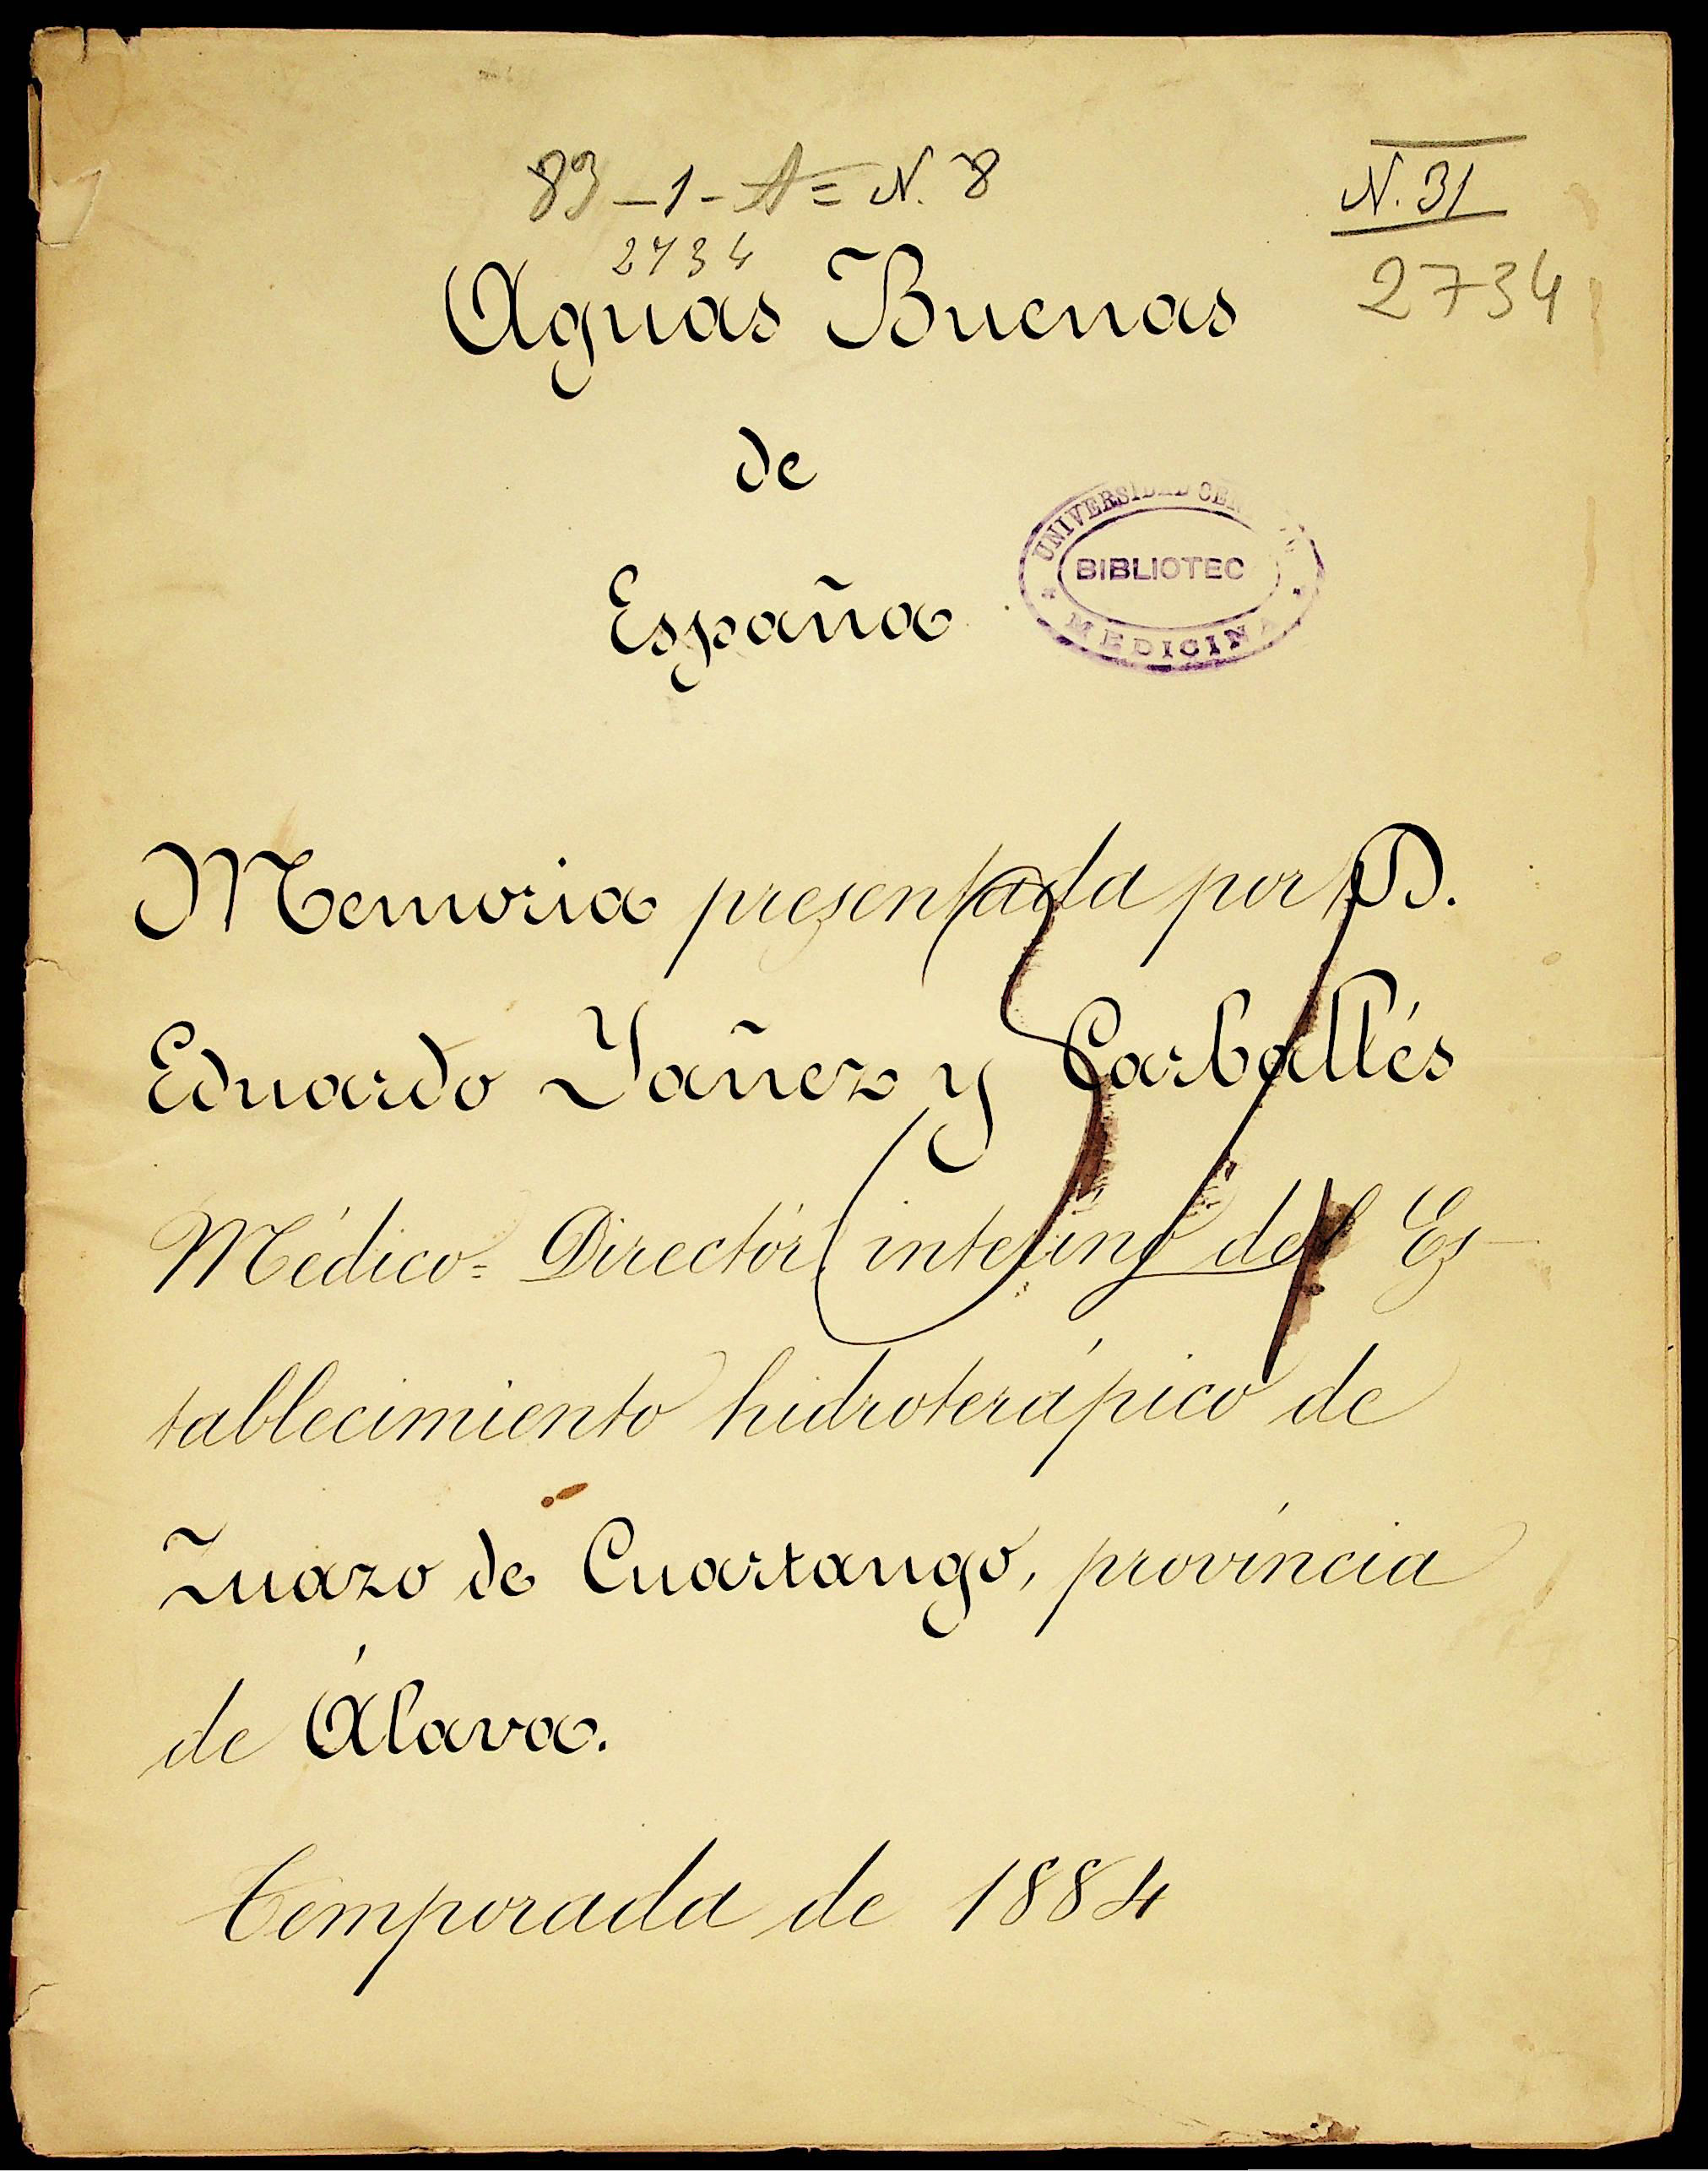 83-1-A=N.8
N.31
2734
2734
Aguas Buenas
de
España
UNIVERSIDAD
BIBLIOTEC
MEDICINA
Memoria presentada por D.
Eduardo Yañez y Carballés
Médico=Director interino del Es-
tablecimiento hidroterápico de
Zuazo de Cuartango, província
de Álava.
Temporada de 1884